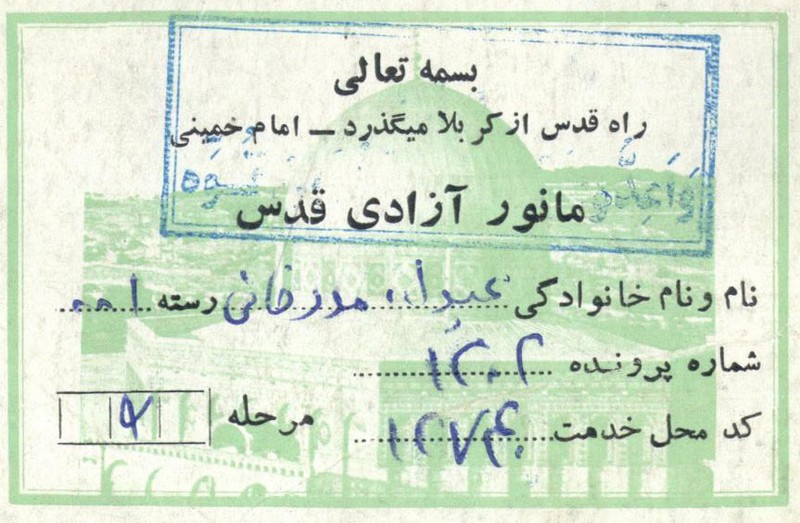 بسمه تعالی
راه قدس از کربلا میگذرد ــ امام خمینی
مانور آزادی قدس
نام و نام خانوادگی عبدالله رسته
شماره پرونده ۱۲۰۲
کد محل خدمت
مرحله